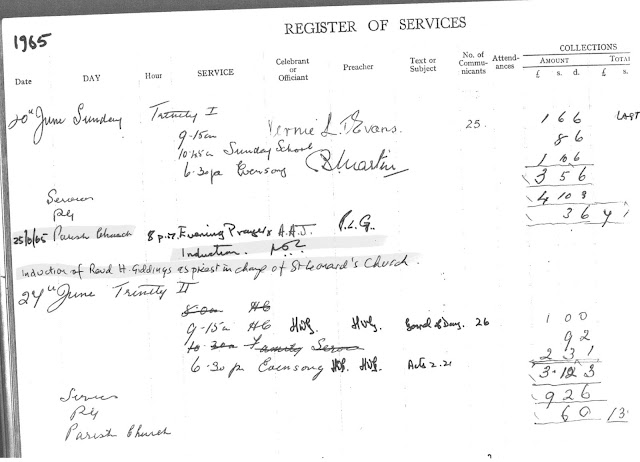 1965
REGISTER OF SERVICES
Date DAY Hour SERVICE Celebrant or Officiant Preacher Text or Subject No. of Commu- nicants Attend- ances COLLECTIONS
AMOUNT TOTAL
£ s. d. £ s.
20th June Sunday Trinity I
LAST
9-15am Vernie L. D. Evans. 25. 1 6 6
10.45am Sunday School 8 6
6.30p Evensong B Martin 1 10 6
3 5 6
Services 4 10 9
3 6
25/6/65 Parish Church 8 p.m. Evening Prayers A.A.J. P.L.G.
Induction.
Induction of Revd H. Giddings as priest in charge of St Leonard's Church.
27th June Trinity II
8.0am HC 1 0 0
9-15am HC HVG. HVG. 26 9 2
10.30am Family Service 2 3 1
6.30p Evensong HVG. HVG. Acts 2.21 3.12 3
Services 9 2 6
6 0 13
Parish Church